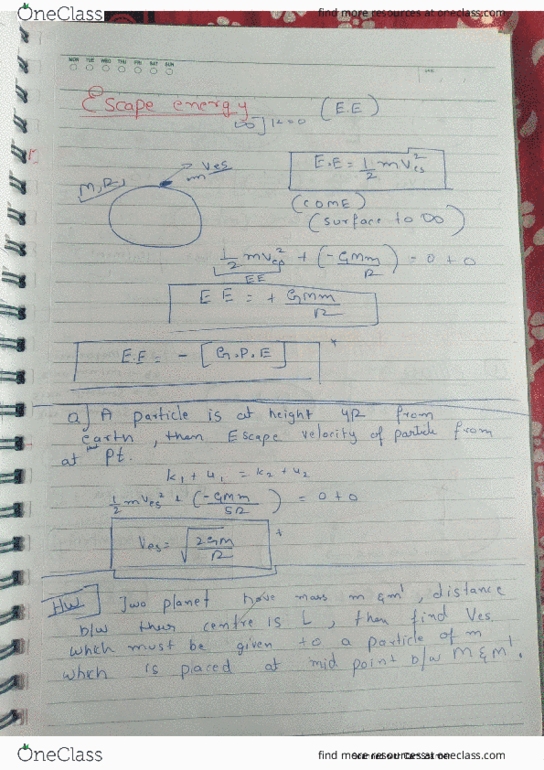 OneClass
find more resources at oneclass.com
MON TUE WED THU FRI SAT SUN
Escape energy (E.E)
∞] k=0
M, R,
m
Ves
E.E = 1/2 m Ves²
(COME)
(surface to ∞)
1/2 m Ves² + (-GMm/R) = 0 + 0
EE
E E = + GMm/R
E.E = - [G.P.E]
Q] A particle is at height 4R from
earth, then Escape velocity of particle from
at pt.
k1 + u1 = k2 + u2
1/2 m Ves² + (-GMm/5R) = 0 + 0
Ves = √2GM/R
HW Two planet have mass m & m', distance
b/w their centre is L, then find Ves
which must be given to a particle of m
which is placed at mid point b/w M & M'.
OneClass
find more resources at oneclass.com